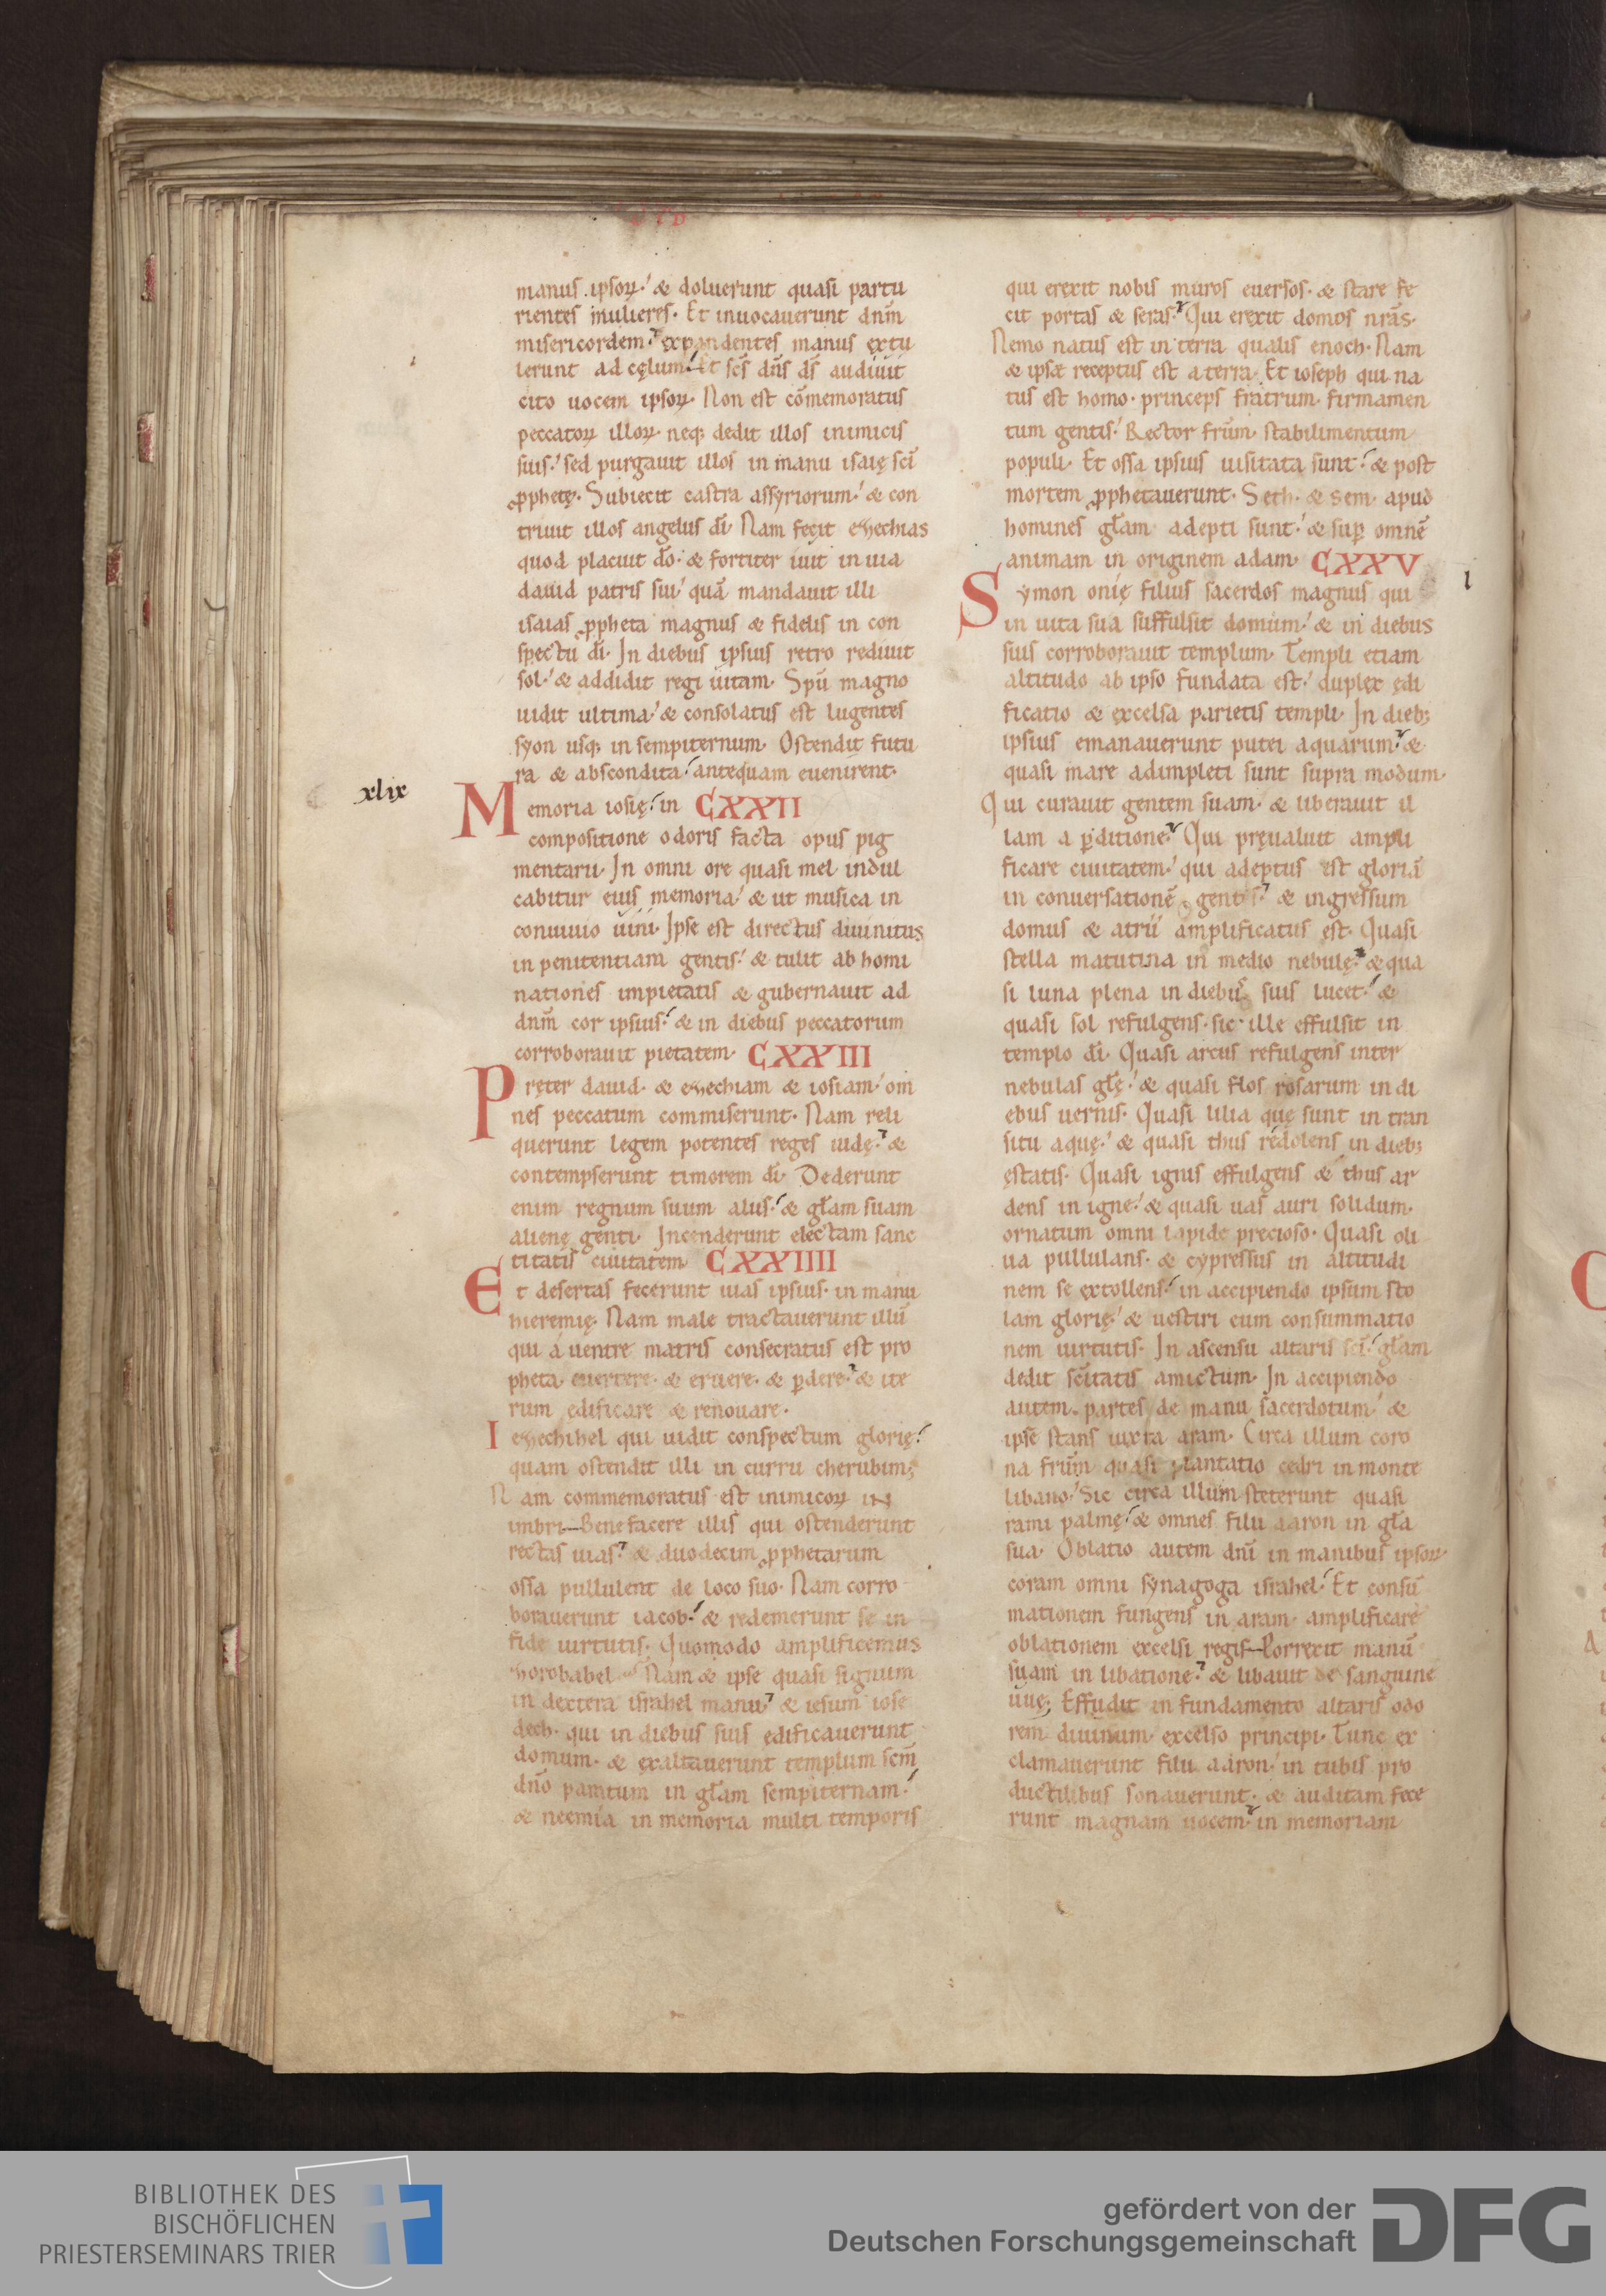 manus ipsoꝝ· & doluerunt quasi partu
rientes mulieres· Et inuocauerunt dnm̄
misericordem· expandentes manus extu
lerunt ad cęlum· Et scs̄ dns̄ ds̄ audiuit
cito uocem ipsoꝝ· Non est cōmemoratus
peccatoꝝ illoꝝ· neq; dedit illos inimicis
suis· sed purgauit illos in manu isaię sci̅
ꝓphetę· Subiecit castra assyriorum· & con
triuit illos angelus di̅· Nam fecit ezechias
quod placuit do̅· & fortiter iuit in uia
dauid patris sui· quā mandauit illi
isaias ꝓpheta magnus & fidelis in con
spectu di̅· In diebus ipsius retro rediuit
sol· & addidit regi uitam· Spū magno
uidit ultima· & consolatus est lugentes
syon usq; in sempiternum· Ostendit futu
ra & abscondita· antequam euenirent·
xlix
Memoria iosię· in CXXII
compositione odoris facta opus pig
mentarii· In omni ore quasi mel indul
cabitur eius memoria· & ut musica in
conuiuio uini· Ipse est directus diuinitus
in penitentiam gentis· & tulit abhomi
nationes impietatis & gubernauit ad
dnm̄ cor ipsius· & in diebus peccatorum
corroborauit pietatem· CXXIII
Pręter dauid· & ezechiam & iosiam· om
nes peccatum commiserunt· Nam reli
querunt legem potentes reges iudę· &
contempserunt timorem di̅· Dederunt
enim regnum suum aliis· & glam̄ suam
alienę genti· Incenderunt electam sanc
titatis ciuitatem· CXXIIII
Et desertas fecerunt uias ipsius· in manu
hieremię· Nam male tractauerunt illū
qui a uentre matris consecratus est pro
pheta· euertere· & eruere· & ꝑdere· & ite
rum edificare & renouare·
Iezechihel qui uidit conspectum glorię·
quam ostendit illi in curru cherubim;
Nam commemoratus est inimicoꝝ in
imbri Benefacere illis qui ostenderunt
rectas uias· & duodecim ꝓphetarum
ossa pullulent de loco suo· Nam corro
borauerunt iacob· & redemerunt se in
fide uirtutis· Quomodo amplificemus
zorobabel Nam & ipse quasi signum
in dextera israhel manu· & iesum iose
dech· qui in diebus suis edificauerunt
domum· & exaltauerunt templum scm̄
dno̅ paratum in glam̄ sempiternam·
& neemia in memoria multi temporis
qui erexit nobis muros euersos· & stare fe
cit portas & seras· Qui erexit domos nrās·
Nemo natus est in terra qualis enoch· Nam
& ipse receptus est a terra· Et ioseph qui na
tus est homo· princeps fratrum· firmamen
tum gentis· Rector frūm· stabilimentum
populi· Et ossa ipsius uisitata sunt· & post
mortem ꝓphetauerunt· Seth· & sem· apud
homines glam̄ adepti sunt· & suꝑ omnē
animam in originem adam· CXXV
l
Symon onię filius sacerdos magnus qui
in uita sua suffulsit domum· & in diebus
suis corroborauit templum· Templi etiam
altitudo ab ipso fundata est· duplex ędi
ficatio & excelsa parietis templi· In dieb;
ipsius emanauerunt putei aquarum· &
quasi mare adimpleti sunt supra modum·
Qui curauit gentem suam· & liberauit il
lam a ꝑditione· Qui pręualuit ampli
ficare ciuitatem· qui adeptus est gloriā
in conuersationē gentis· & ingressum
domus & atrii amplificatus est· Quasi
stella matutina in medio nebulę· & qua
si luna plena in diebus suis lucet· &
quasi sol refulgens· sic ille effulsit in
templo di̅· Quasi arcus refulgens inter
nebulas glę̄· & quasi flos rosarum in di
ebus uernis· Quasi lilia quę sunt in tran
situ aquę· & quasi thus redolens in dieb;
ęstatis· Quasi ignis effulgens & thus ar
dens in igne· & quasi uas auri solidum·
ornatum omni lapide precioso· Quasi oli
ua pullulans· & cypressus in altitudi
nem se extollens· in accipiendo ipsum sto
lam glorię· & uestiri eum consummatio
nem uirtutis· In ascensu altaris sci̅· glam̄
dedit scīitatis amictum· In accipiendo
autem partes de manu sacerdotum· &
ipse stans iuxta aram· Circa illum coro
na frūm quasi plantatio cedri in monte
libano· Sic circa illum steterunt quasi
rami palmę· & omnes filii aaron in gla̅
sua· Oblatio autem dni̅ in manibus ipsoꝝ
coram omni synagoga israhel· Et consū
mationem fungens in aram· amplificare
oblationem excelsi regis Porrexit manū
suam in libatione· & libauit de sanguine
uuę; Effudit in fundamento altaris odo
rem diuinum· excelso principi· Tunc ex
clamauerunt filii aaron· in tubis pro
ductilibus sonauerunt· & auditam fece
runt magnam uocem· in memoriam
BIBLIOTHEK DES
BISCHÖFLICHEN
PRIESTERSEMINARS TRIER
gefördert von der
Deutschen Forschungsgemeinschaft
DFG